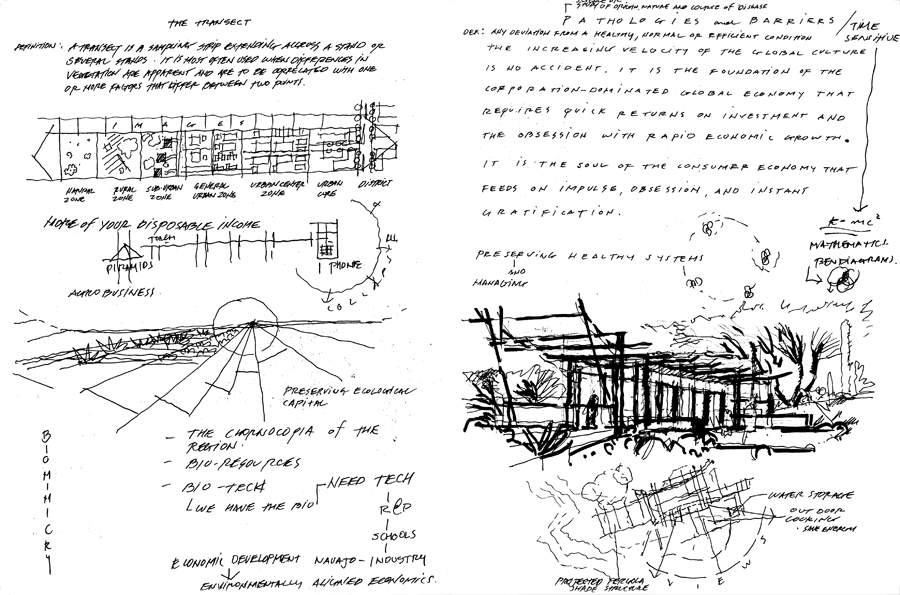 THE TRANSECT
DEFINITION: A TRANSECT IS A SAMPLING STRIP EXTENDING ACCROSS A STAND OR
SEVERAL STANDS. IT IS MOST OFTEN USED WHEN DIFFERENCES IN
VEGETATION ARE APPARENT AND ARE TO BE CORRELATED WITH ONE
OR MORE FACTORS THAT DIFFER BETWEEN TWO POINTS.
I M A G E S
RURAL ZONE
SUB-URBAN ZONE
GENERAL URBAN ZONE
URBAN CENTER ZONE
URBAN CORE
DISTRICT
MORE OF YOUR DISPOSABLE INCOME
TORCH
PYRAMIDS
PHONE
CELL
AGRO BUSINESS.
PRESERVING ECOLOGICAL
CAPITAL
BIOMIMICRY
- THE CHORNOCOPIA of THE
REGION.
- BIO-RESOURCES
- BIO-TECH
WE HAVE THE BIO
NEED TECH
R&D
SCHOOLS
ECONOMIC DEVELOPMENT NAVAJO - INDUSTRY
ENVIRONMENTALLY ALIGNED ECONOMICS.
STUDY OF ORIGIN, NATURE AND COURSE OF DISEASE
PATHOLOGIES and BARRIERS
DEF: ANY DEVIATION FROM A HEALTHY, NORMAL OR EFFICIENT CONDITION
TIME
SENSITIVE
THE INCREASING VELOCITY OF THE GLOBAL CULTURE
IS NO ACCIDENT. IT IS THE FOUNDATION OF THE
CORPORATION-DOMINATED GLOBAL ECONOMY THAT
REQUIRES QUICK RETURNS ON INVESTMENT AND
THE OBSESSION WITH RAPID ECONOMIC GROWTH.
IT IS THE SOUL OF THE CONSUMER ECONOMY THAT
FEEDS ON IMPULSE, OBSESSION, AND INSTANT
GRATIFICATION.
E=MC²
MATHEMATICS.
PRESERVING HEALTHY SYSTEMS
AND
MANAGING
WATER STORAGE
OUT DOOR
COOKING
· SAVE ENERGY
VIEWS
PROJECTED PERGOLA
SHADE STRUCTURE